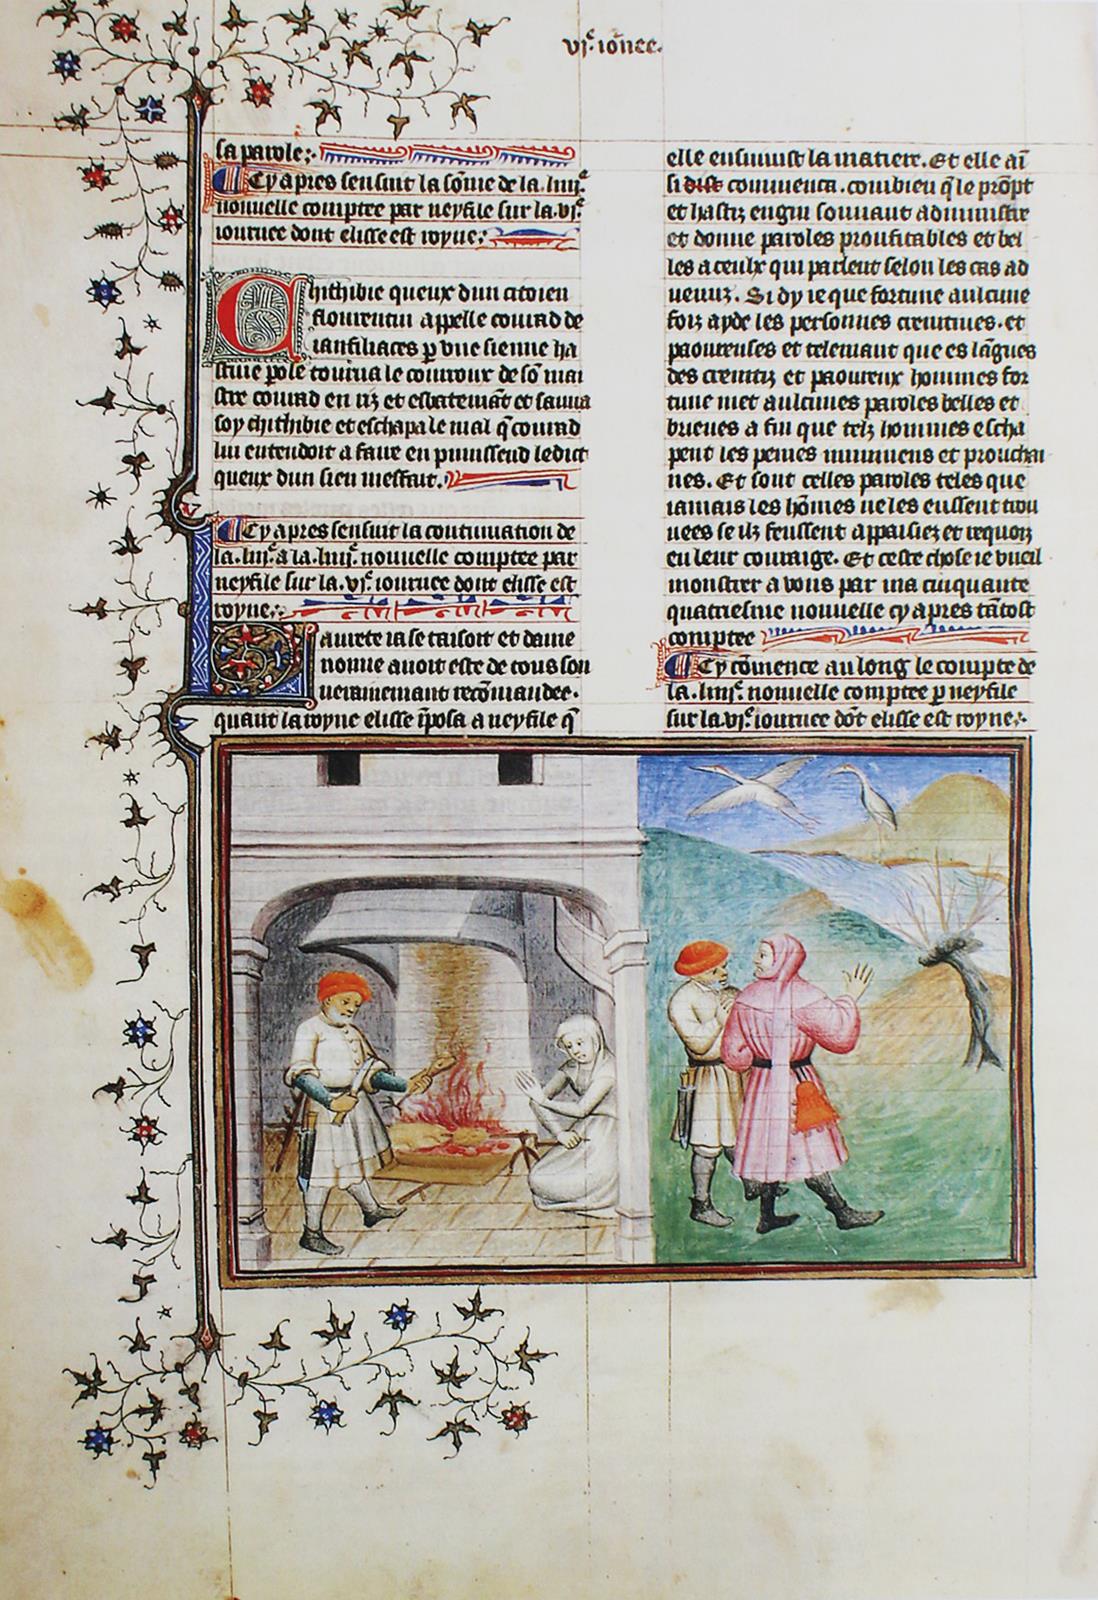 vjͤ. iōnee.
sa parole :·
Cy apres sensuit la sōme de la .iiijͤ.
nouuelle comptee par neyfile sur la .vjͤ.
iournee dont elisse est royne :·
Chithibie queux dun citoien
flourentin appelle courad de
ianfiliaces p vne sienne ha
stiue pole tourna le courroux de sō mai
stre courad en riz et esbatemāt et sauua
soy chithibie et eschapa le mal q̄ courad
lui entendoit a faire en punissend ledict
queux dun sien meffait.
Cy apres sensuit la continuation de
la .iiijͤ. a la .iiijͤ. nouuelle comptee par
neyfile sur la .vjͤ. iournee dont elisse est
royne :·
Laurete ia se taisoit et dame
nonne auoit este de tous sou
uerainemant recōmandee.
quant la royne elisse īposa a neyfile q̄
elle ensuiuist la matiere. Et elle aī
si dist commenca. combien q̄ le prōpt
et hastiz engin souuant administre
et donne paroles proufitables et bel
les a ceulx qui parlent selon les cas ad
uenuz. Si dy ie que fortune aulcune
foiz ayde les personnes cremtiues. et
paoureuses et telemant que es lāgues
des cremtiz et paoureux hommes for
tune met aulcunes paroles belles et
brieues a fin que telz hommes escha
pent les peines iminuens et prouchai
nes. Et sont celles paroles teles que
iamais les hōmes ne les eussent trou
uees se ilz feussent appaisiez et requoiz
en leur couraige. Et ceste chose ie vueil
monstrer a vous par ma cinquante
quatriesme nouuelle cy apres tātost
comptee
Cy cōmence au long le compte de
la .iiijͤ. nouuelle comptee p neyfile
sur la .vjͤ. iournee dōt elisse est royne :·